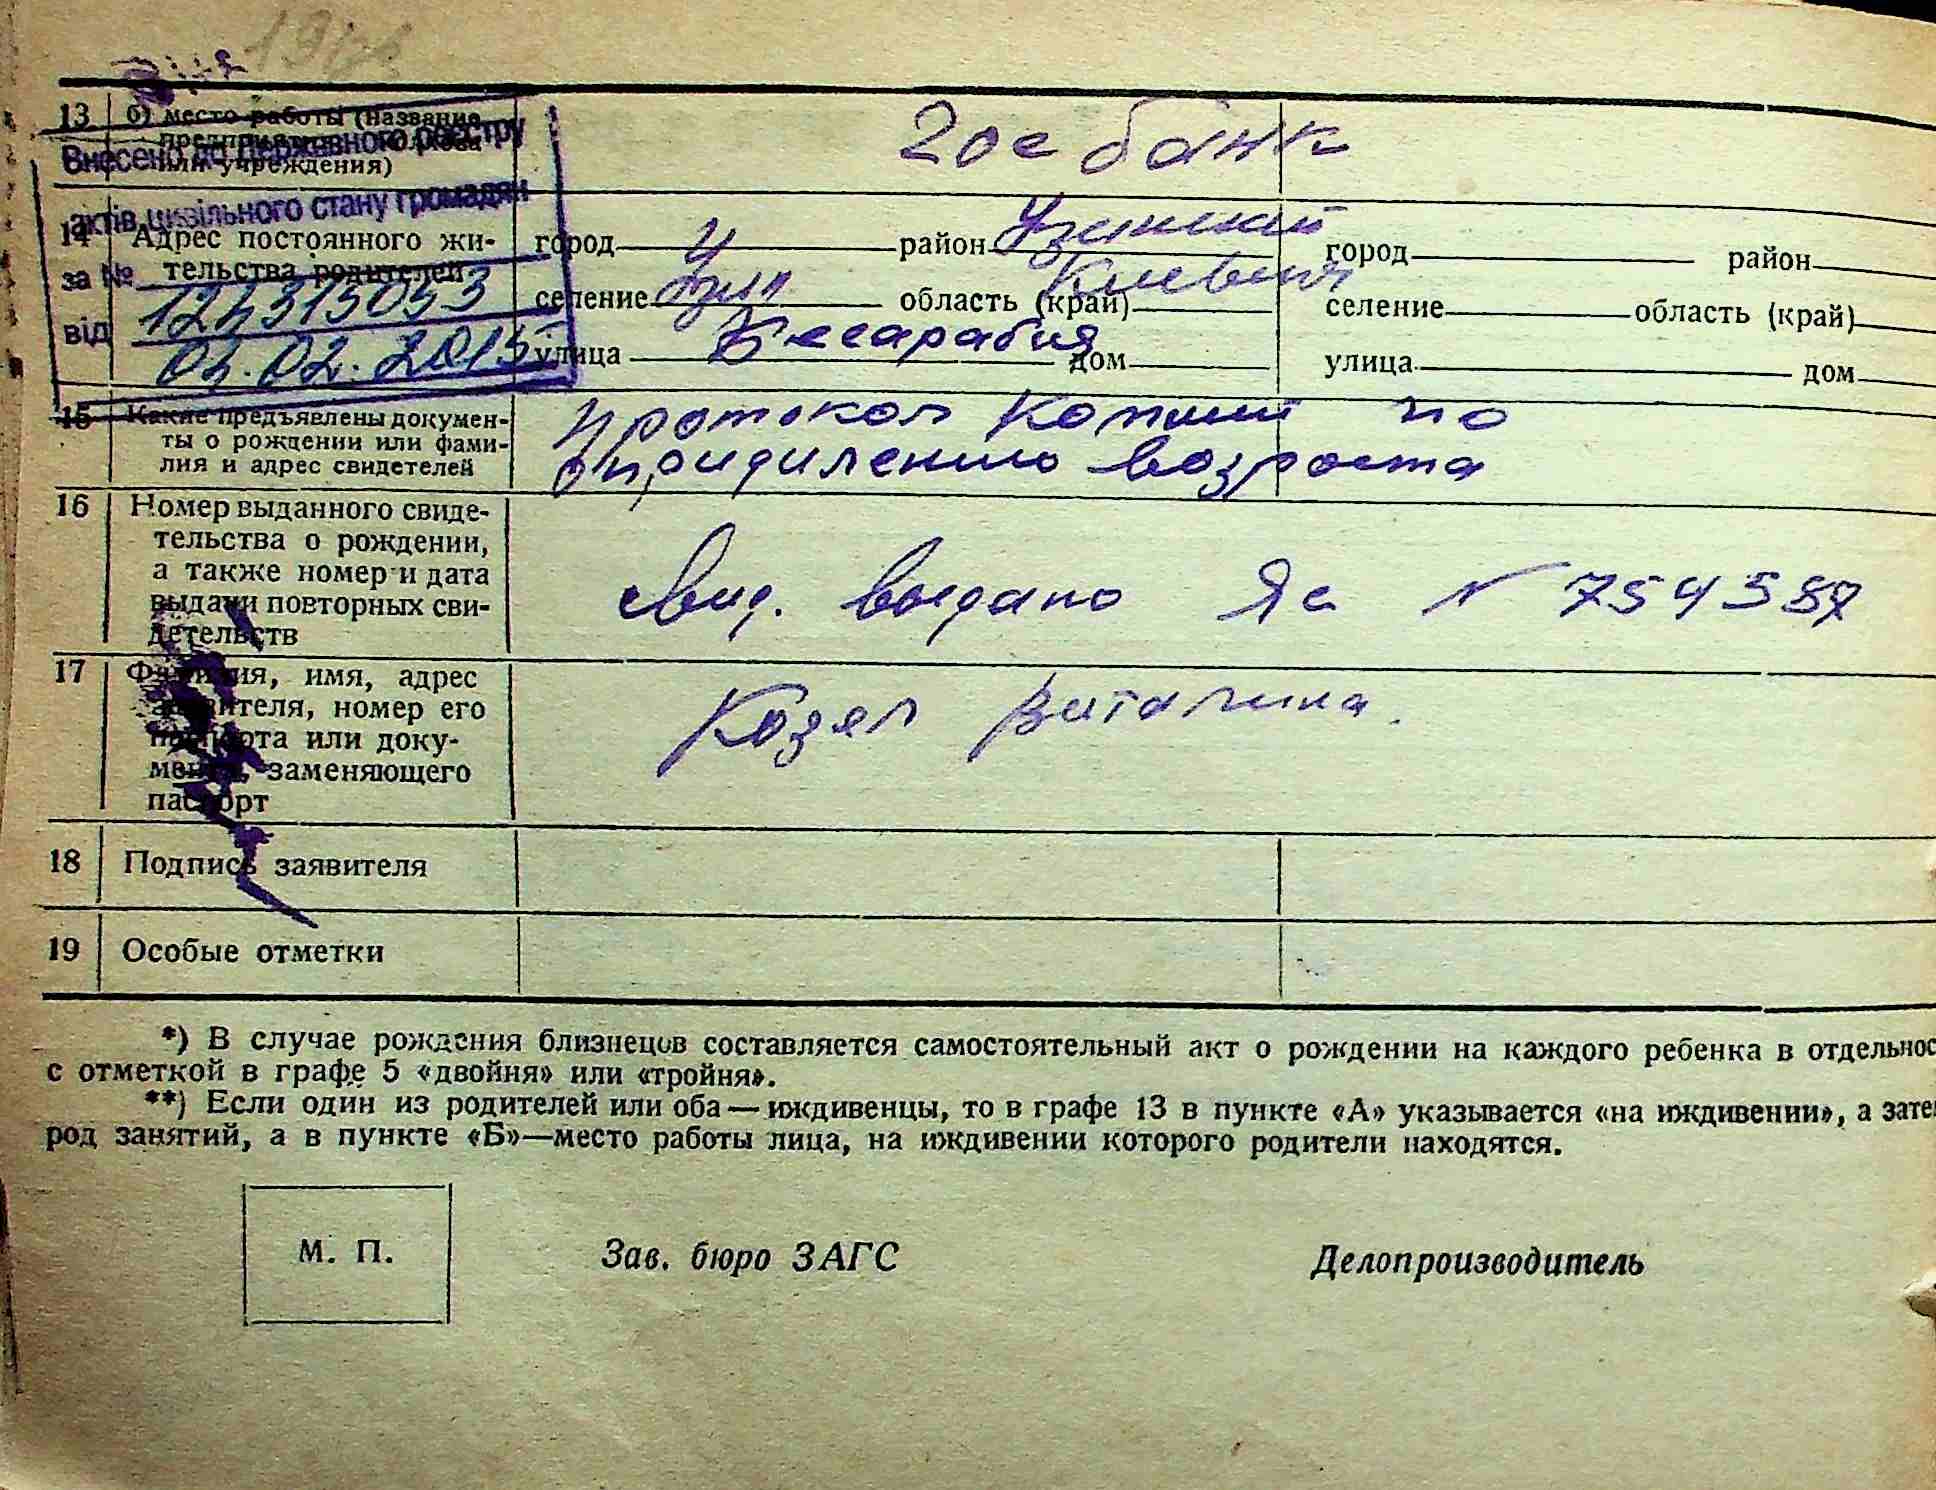 13 б) место работы (название
предприятия, колхоза
или учреждения)
гос банк
Внесено до Державного реєстру
актів цивільного стану громадян
за №
124315053
від 04.02.2015
14 Адрес постоянного жи-
тельства родителей
город район Узинский
селение Узин область (край) Киевская
улица Бесарабия дом
город район
селение область (край)
улица дом
15 Какие предъявлены докумен-
ты о рождении или фами-
лия и адрес свидетелей
протокол комиии по
опридилению возроста
16 Номер выданного свиде-
тельства о рождении,
а также номер и дата
выдачи повторных сви-
детельств
свид. выдано Яс N 754587
17 Фамилия, имя, адрес
заявителя, номер его
паспорта или доку-
мента, заменяющего
паспорт
Козел Виталина.
18 Подпись заявителя
19 Особые отметки
*) В случае рождения близнецов составляется самостоятельный акт о рождении на каждого ребенка в отдельнос
с отметкой в графе 5 «двойня» или «тройня».
**) Если один из родителей или оба — иждивенцы, то в графе 13 в пункте «А» указывается «на иждивении», а зате
род занятий, а в пункте «Б»—место работы лица, на иждивении которого родители находятся.
М. П.
Зав. бюро ЗАГС
Делопроизводитель